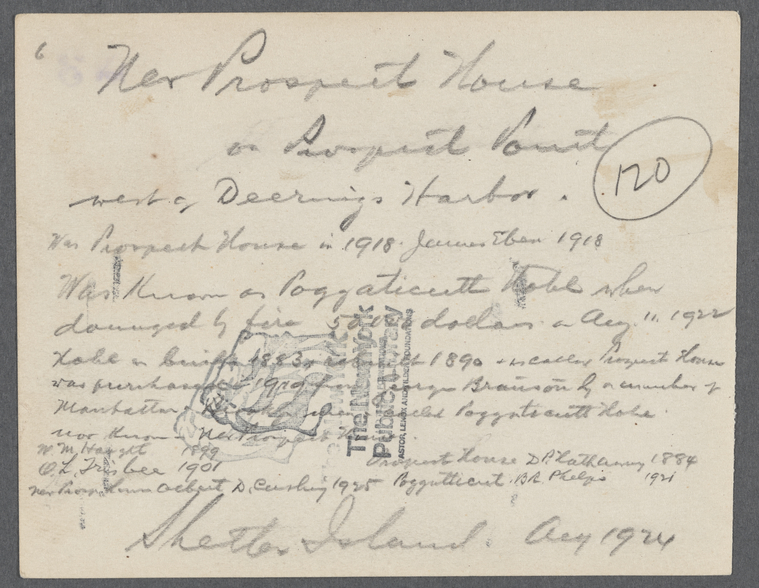 6
New Prospect House
on Prospect Point
120
west of Deerings Harbor.
Was Prospect House in 1918. James Eben 1918
Was Known as Poggaticutt Hotel when
damaged by fire dollars on Aug 11, 1922
Hotel built 1883 1890 called Prospect House
was purchased 1919 Branson by a number of
Manhattan Poggaticutt Hotel
now known New Prospect
W.M. Haight 1899
O.L. Frisbee 1901
Prospect House D.P. Hathaway 1884
New Prospect House Albert D. Cushing 1925 Poggatticut. B.R. Phelps 1921
Shelter Island. Aug 1924
The New York
Public Library
ASTOR, LENOX AND TILDEN FOUNDATIONS